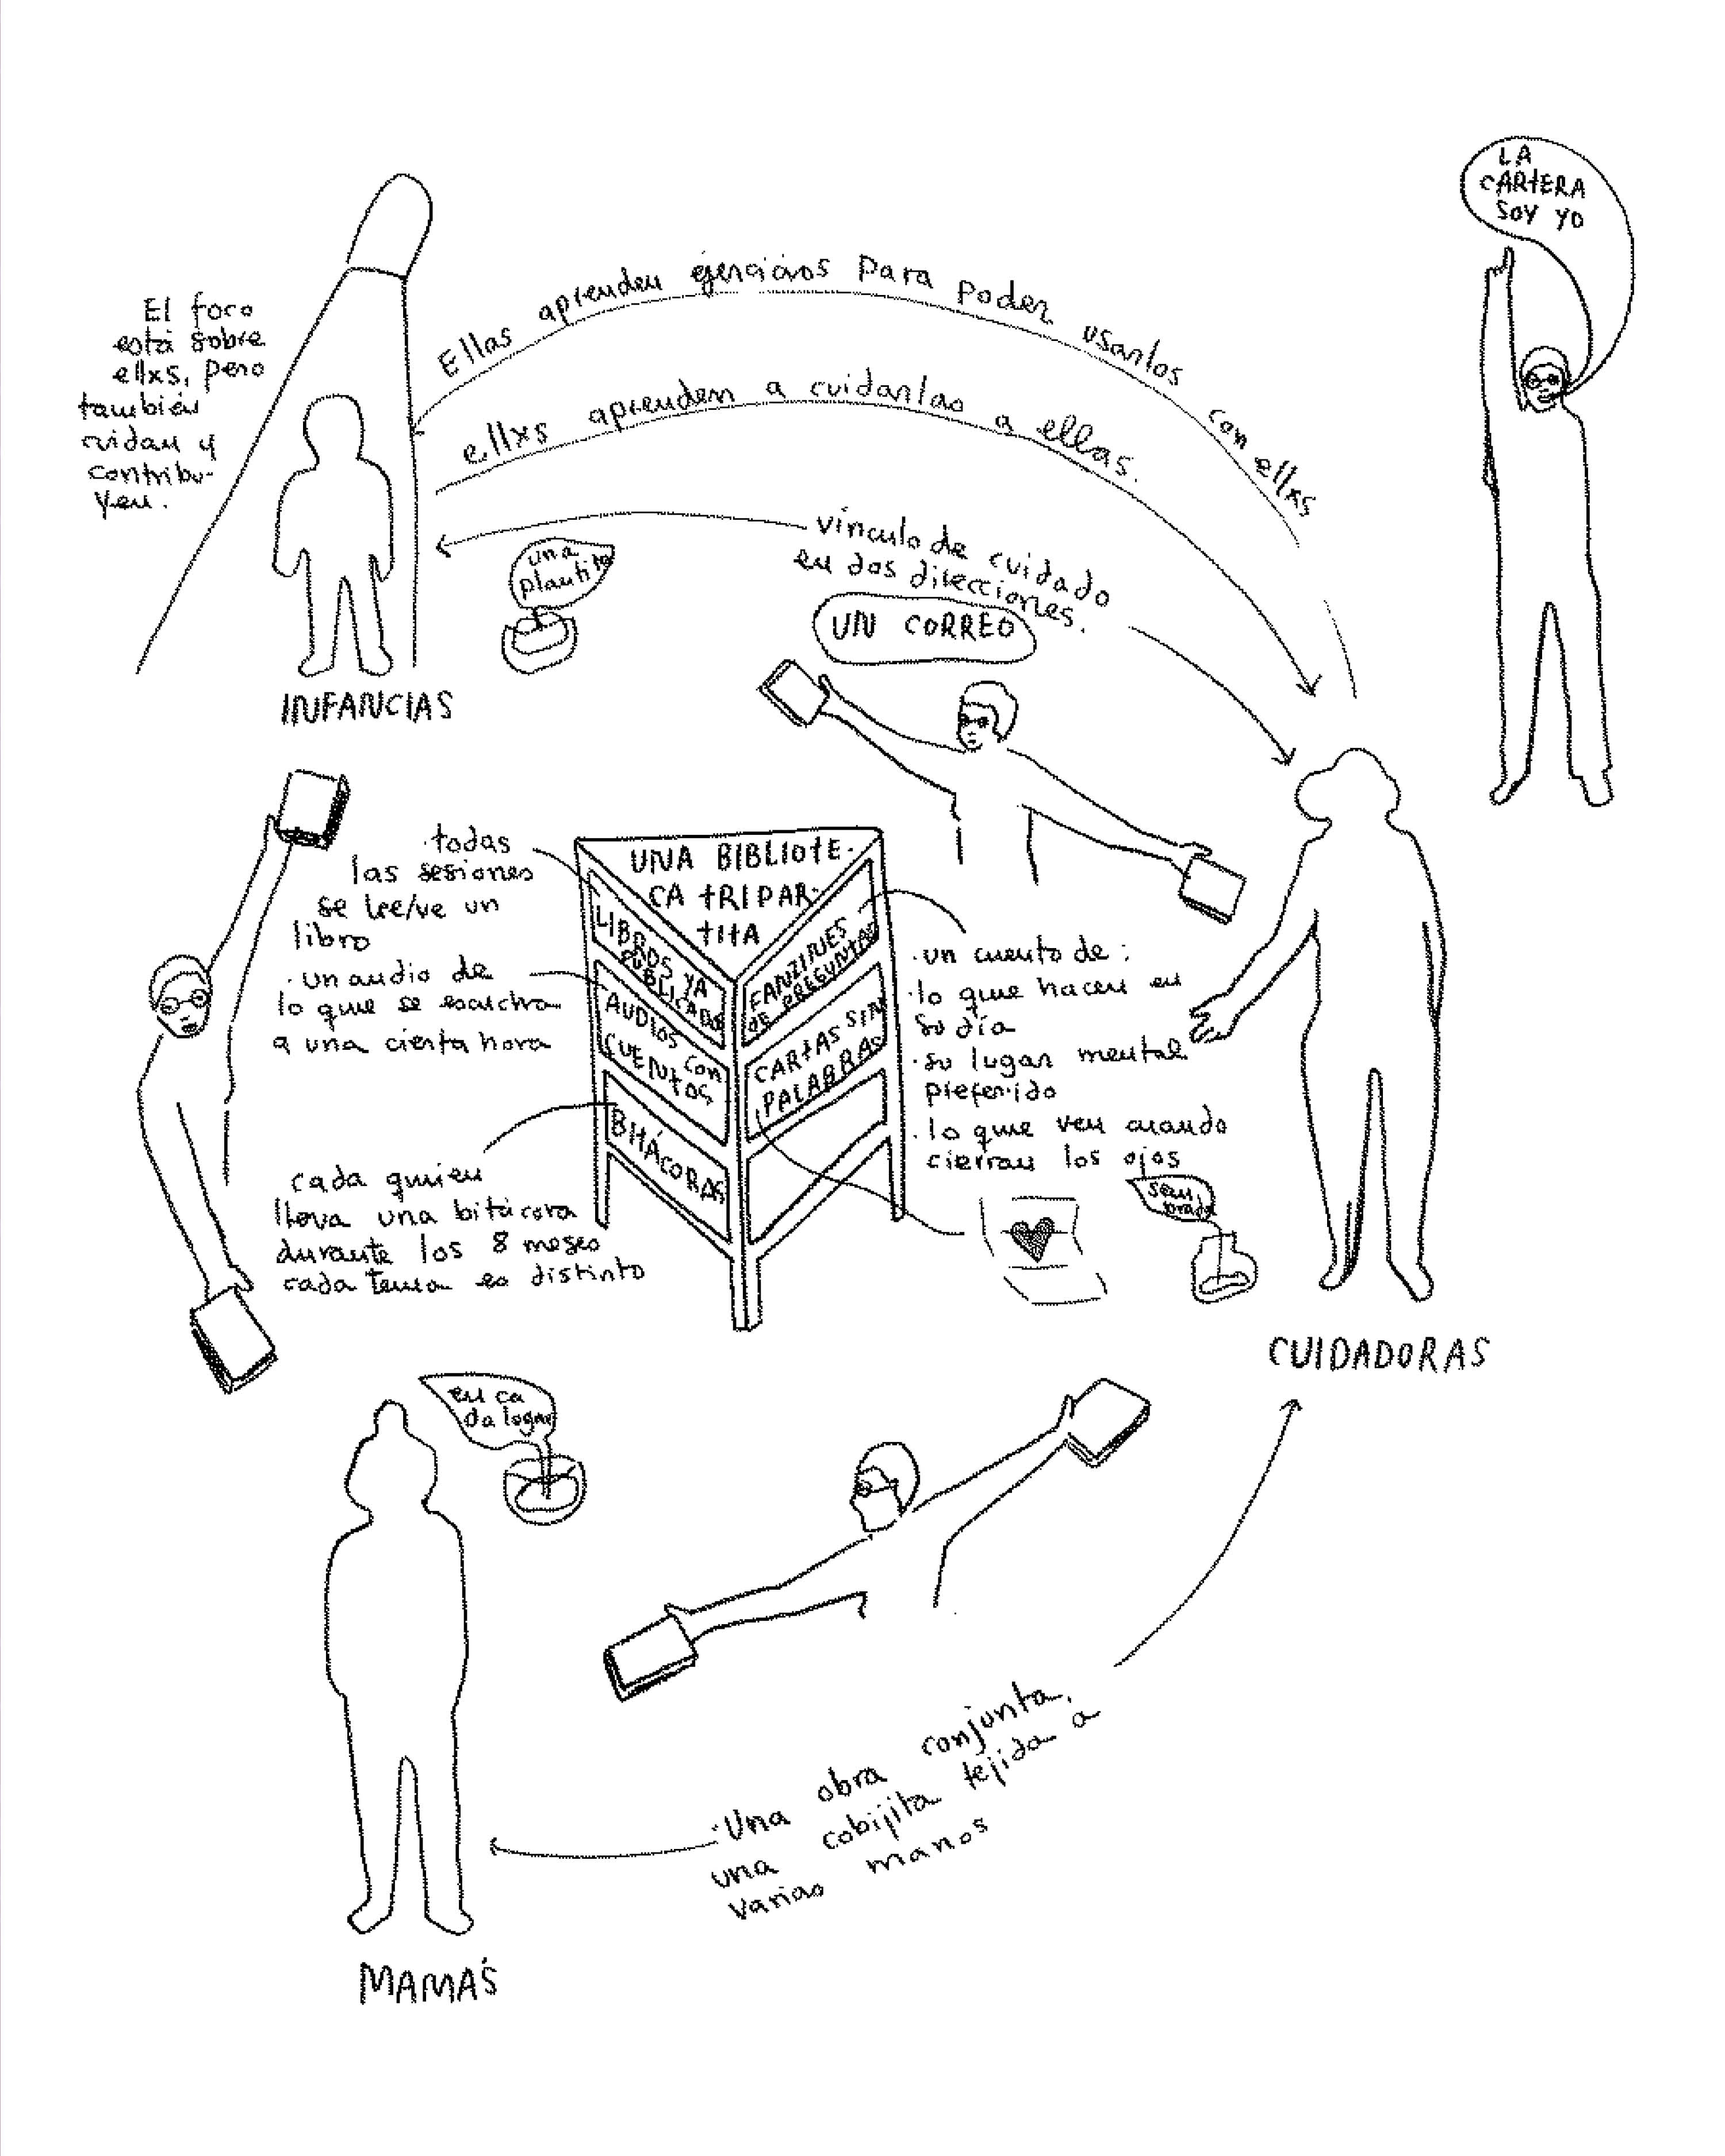 LA
CARTERA
SOY YO
El foco
está sobre
ellxs, pero
también
cuidan y
contribu-
yen.
Ellas aprenden ejercicios para poder usarlos con ellxs
ellxs aprenden a cuidarlas a ellas.
vínculo de cuidado
en dos direcciones.
una
plantita
UN CORREO
INFANCIAS
·todas
las sesiones
se lee/ve un
libro
·un audio de
lo que se escucha
a una cierta hora
cada quien
lleva una bitácora
durante los 8 meses
cada tema es distinto
UNA BIBLIOTE-
CA TRIPAR-
TITA
LIBROS YA
PUBLICADOS
AUDIOS CON
CUENTOS
BITÁCORAS
FANZINES
DE PREGUNTAS
CARTAS SIN
PALABRAS
·un cuento de:
·lo que hacen en
su día
·su lugar mental
preferido
·lo que ven cuando
cierran los ojos
sem
brada
CUIDADORAS
en ca
da lugar
MAMÁS
·Una obra conjunta,
una cobijita tejida a
varias manos